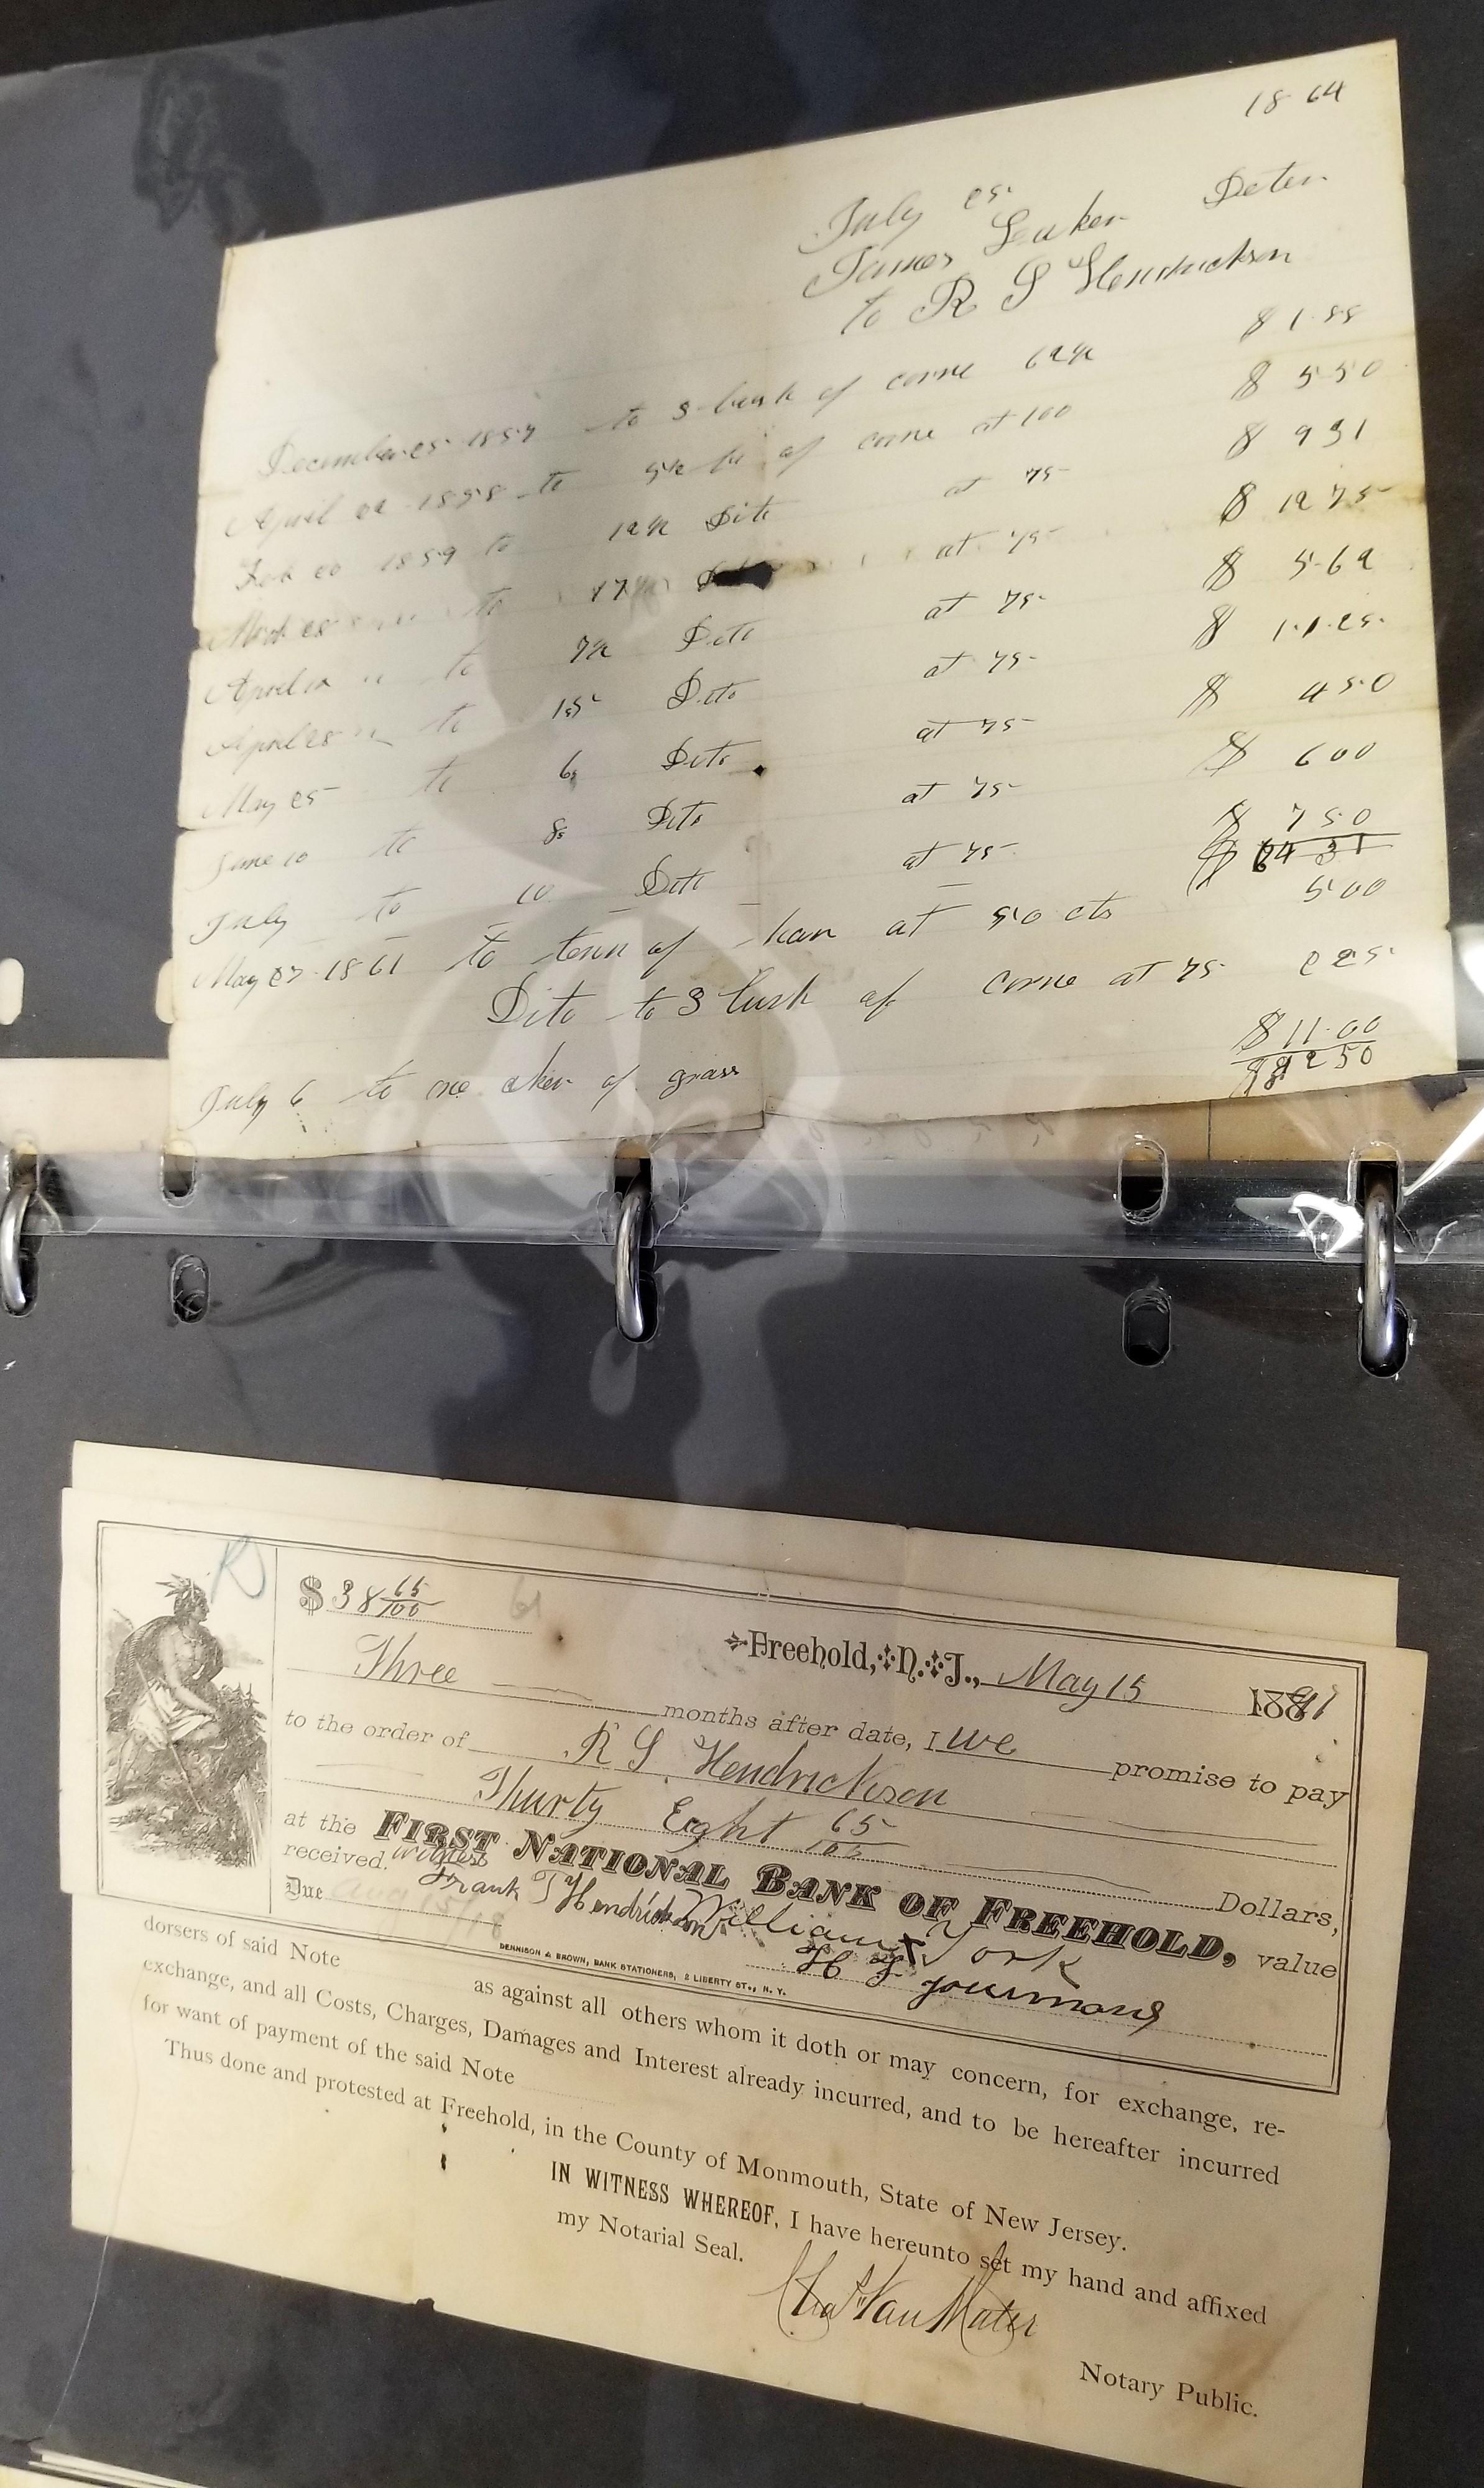 18 64
July 25
James Leaker Deter
to R S Hendrickson
December 25 1857 to 3 bush of corne 62½ $ 1 88
April 02 1858 to 5½ bu of corne at 100 $ 5 50
Feb 20 1859 to 12½ Dito at 75 $ 9 31
March 28 to 17 at 75 $ 12 75
April 12 " to 7½ Dito at 75 $ 5 62
April 28 " to 15 Dito at 75 $ 11 25
May 25 to 6 Dito at 75 $ 4 50
June 10 to 8 Dito at 75 $ 6 00
July to 10 Dito at 75 $ 7 50
$ 64 31
May 27 1861 to tenn of han at 50 cts 5 00
Dito to 3 bush of corne at 75 2 25
July 6 to one aker of grass $ 11 00
2 50
R
$ 38 65/100 61
Freehold, N. J., May 15 1891
Three months after date, I we promise to pay
to the order of R S Hendrickson
Thurty Eght 65/100 Dollars,
at the FIRST NATIONAL BANK OF FREEHOLD, value
received. witness
Frank T Hendrickson William X York
Due Aug 15/18 H F yourmans
DENNISON & BROWN, BANK STATIONERS, 2 LIBERTY ST., N. Y.
dorsers of said Note as against all others whom it doth or may concern, for exchange, re-
exchange, and all Costs, Charges, Damages and Interest already incurred, and to be hereafter incurred
for want of payment of the said Note
Thus done and protested at Freehold, in the County of Monmouth, State of New Jersey.
IN WITNESS WHEREOF, I have hereunto set my hand and affixed
my Notarial Seal.
Chas Van Mater
Notary Public.